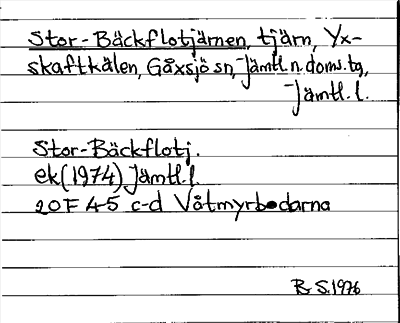 Stor-Bäckflotjärnen, tjärn, Yx-
skaftkälen, Gåxsjö sn, Jämtl. n. doms. tg,
Jämtl. l.
Stor-Bäckflotj.
ek (1974) Jämtl. l.
20F 4-5 c-d Våtmyrbodarna
B. S. 1976